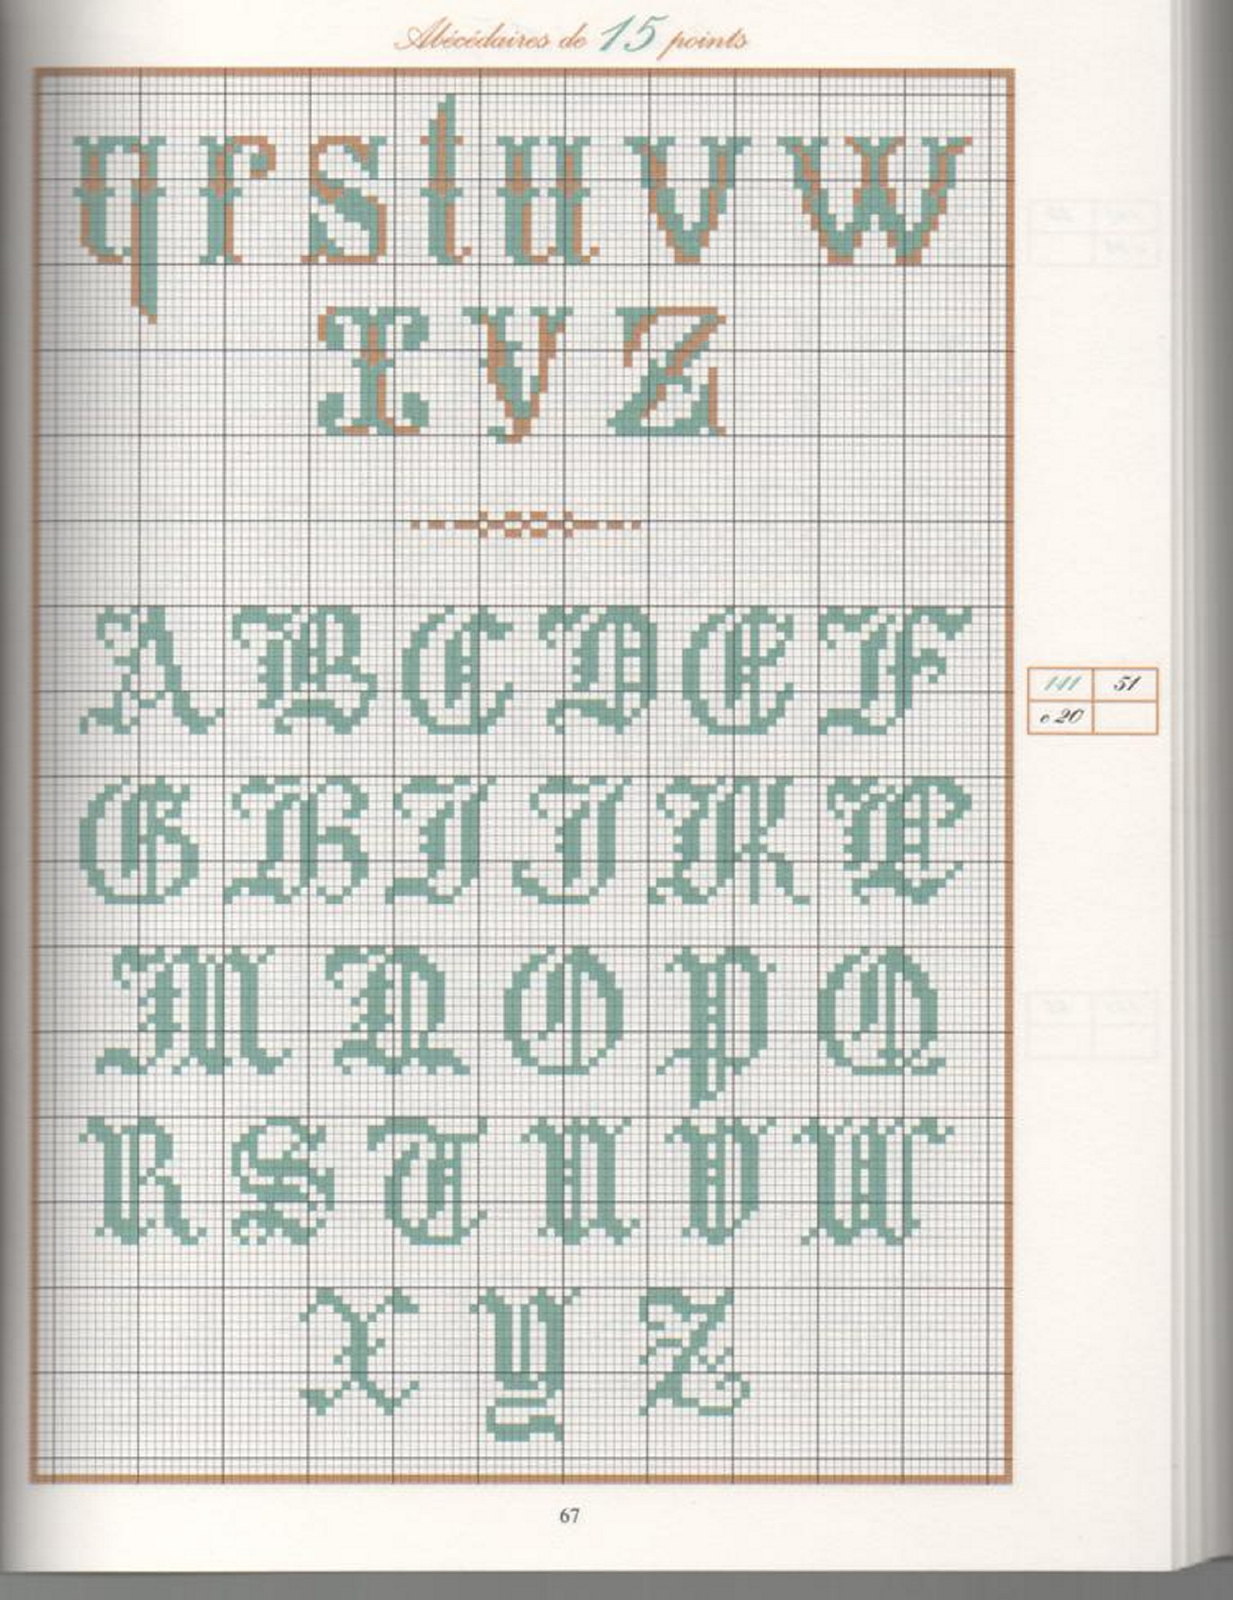 Abécédaires de 15 points
q r s t u v w
x y z
A B C D E F
141 51
c 20
G H I J K L
M N O P Q
R S T U V W
X Y Z
67